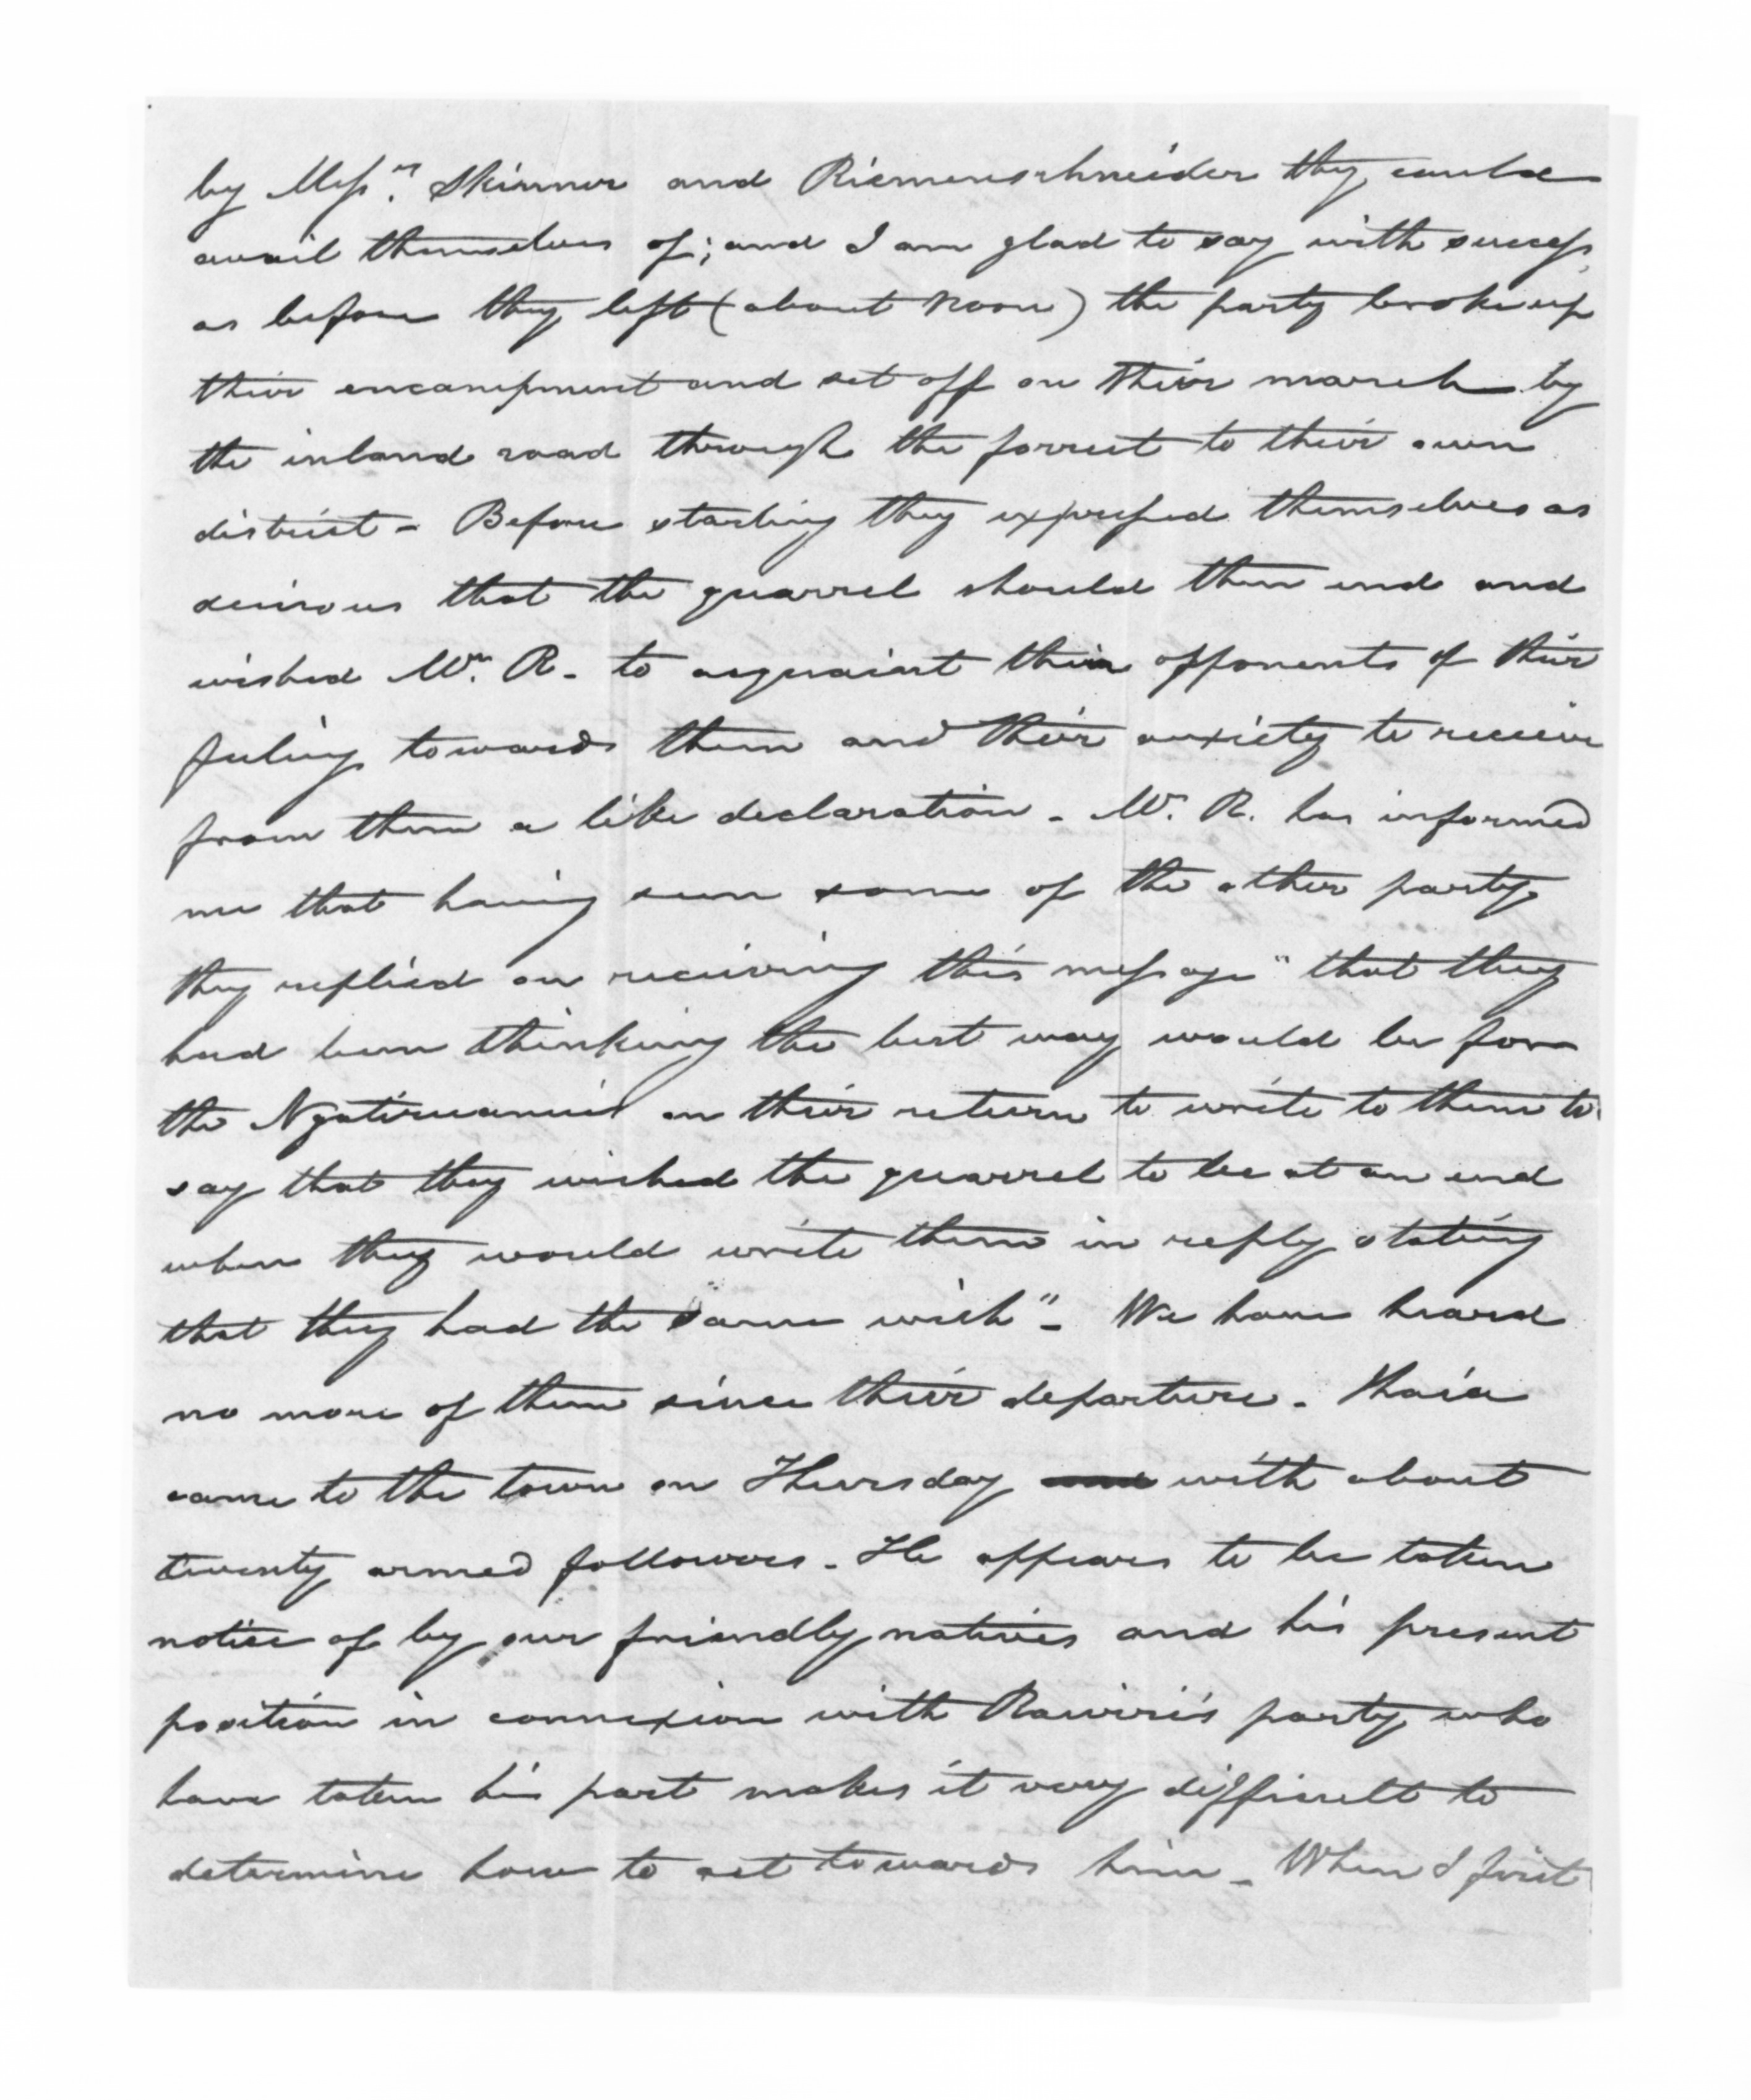 by Messrs. Skinner and Riemenschneider they could
avail themselves of; and I am glad to say with success,
as before they left (about Noon) the party broke up
their encampment and set off on their march by
the inland road through the forrest to their own
district - Before starting they expressed themselves as
desirous that the quarrel should then end and
wished Mr. R. to acquaint their opponents of their
feeling towards them and their anxiety to receive
from them a like declaration - Mr. R. has informed
me that having seen some of the other party,
they replied on receiving this message "that they
had been thinking the best way would be for
the Ngatiruanui on their return to write to them to
say that they wished the quarrel to be at an end
when they would write them in reply stating
that they had the same wish" - We have heard
no more of them since their departure - Ihaia
came to the town on Thursday and with about
twenty armed followers - He appears to be taken
notice of by our friendly natives and his present
position in connexion with Rawiri's party who
have taken his part makes it very difficult to
determine how to act towards him - When I first